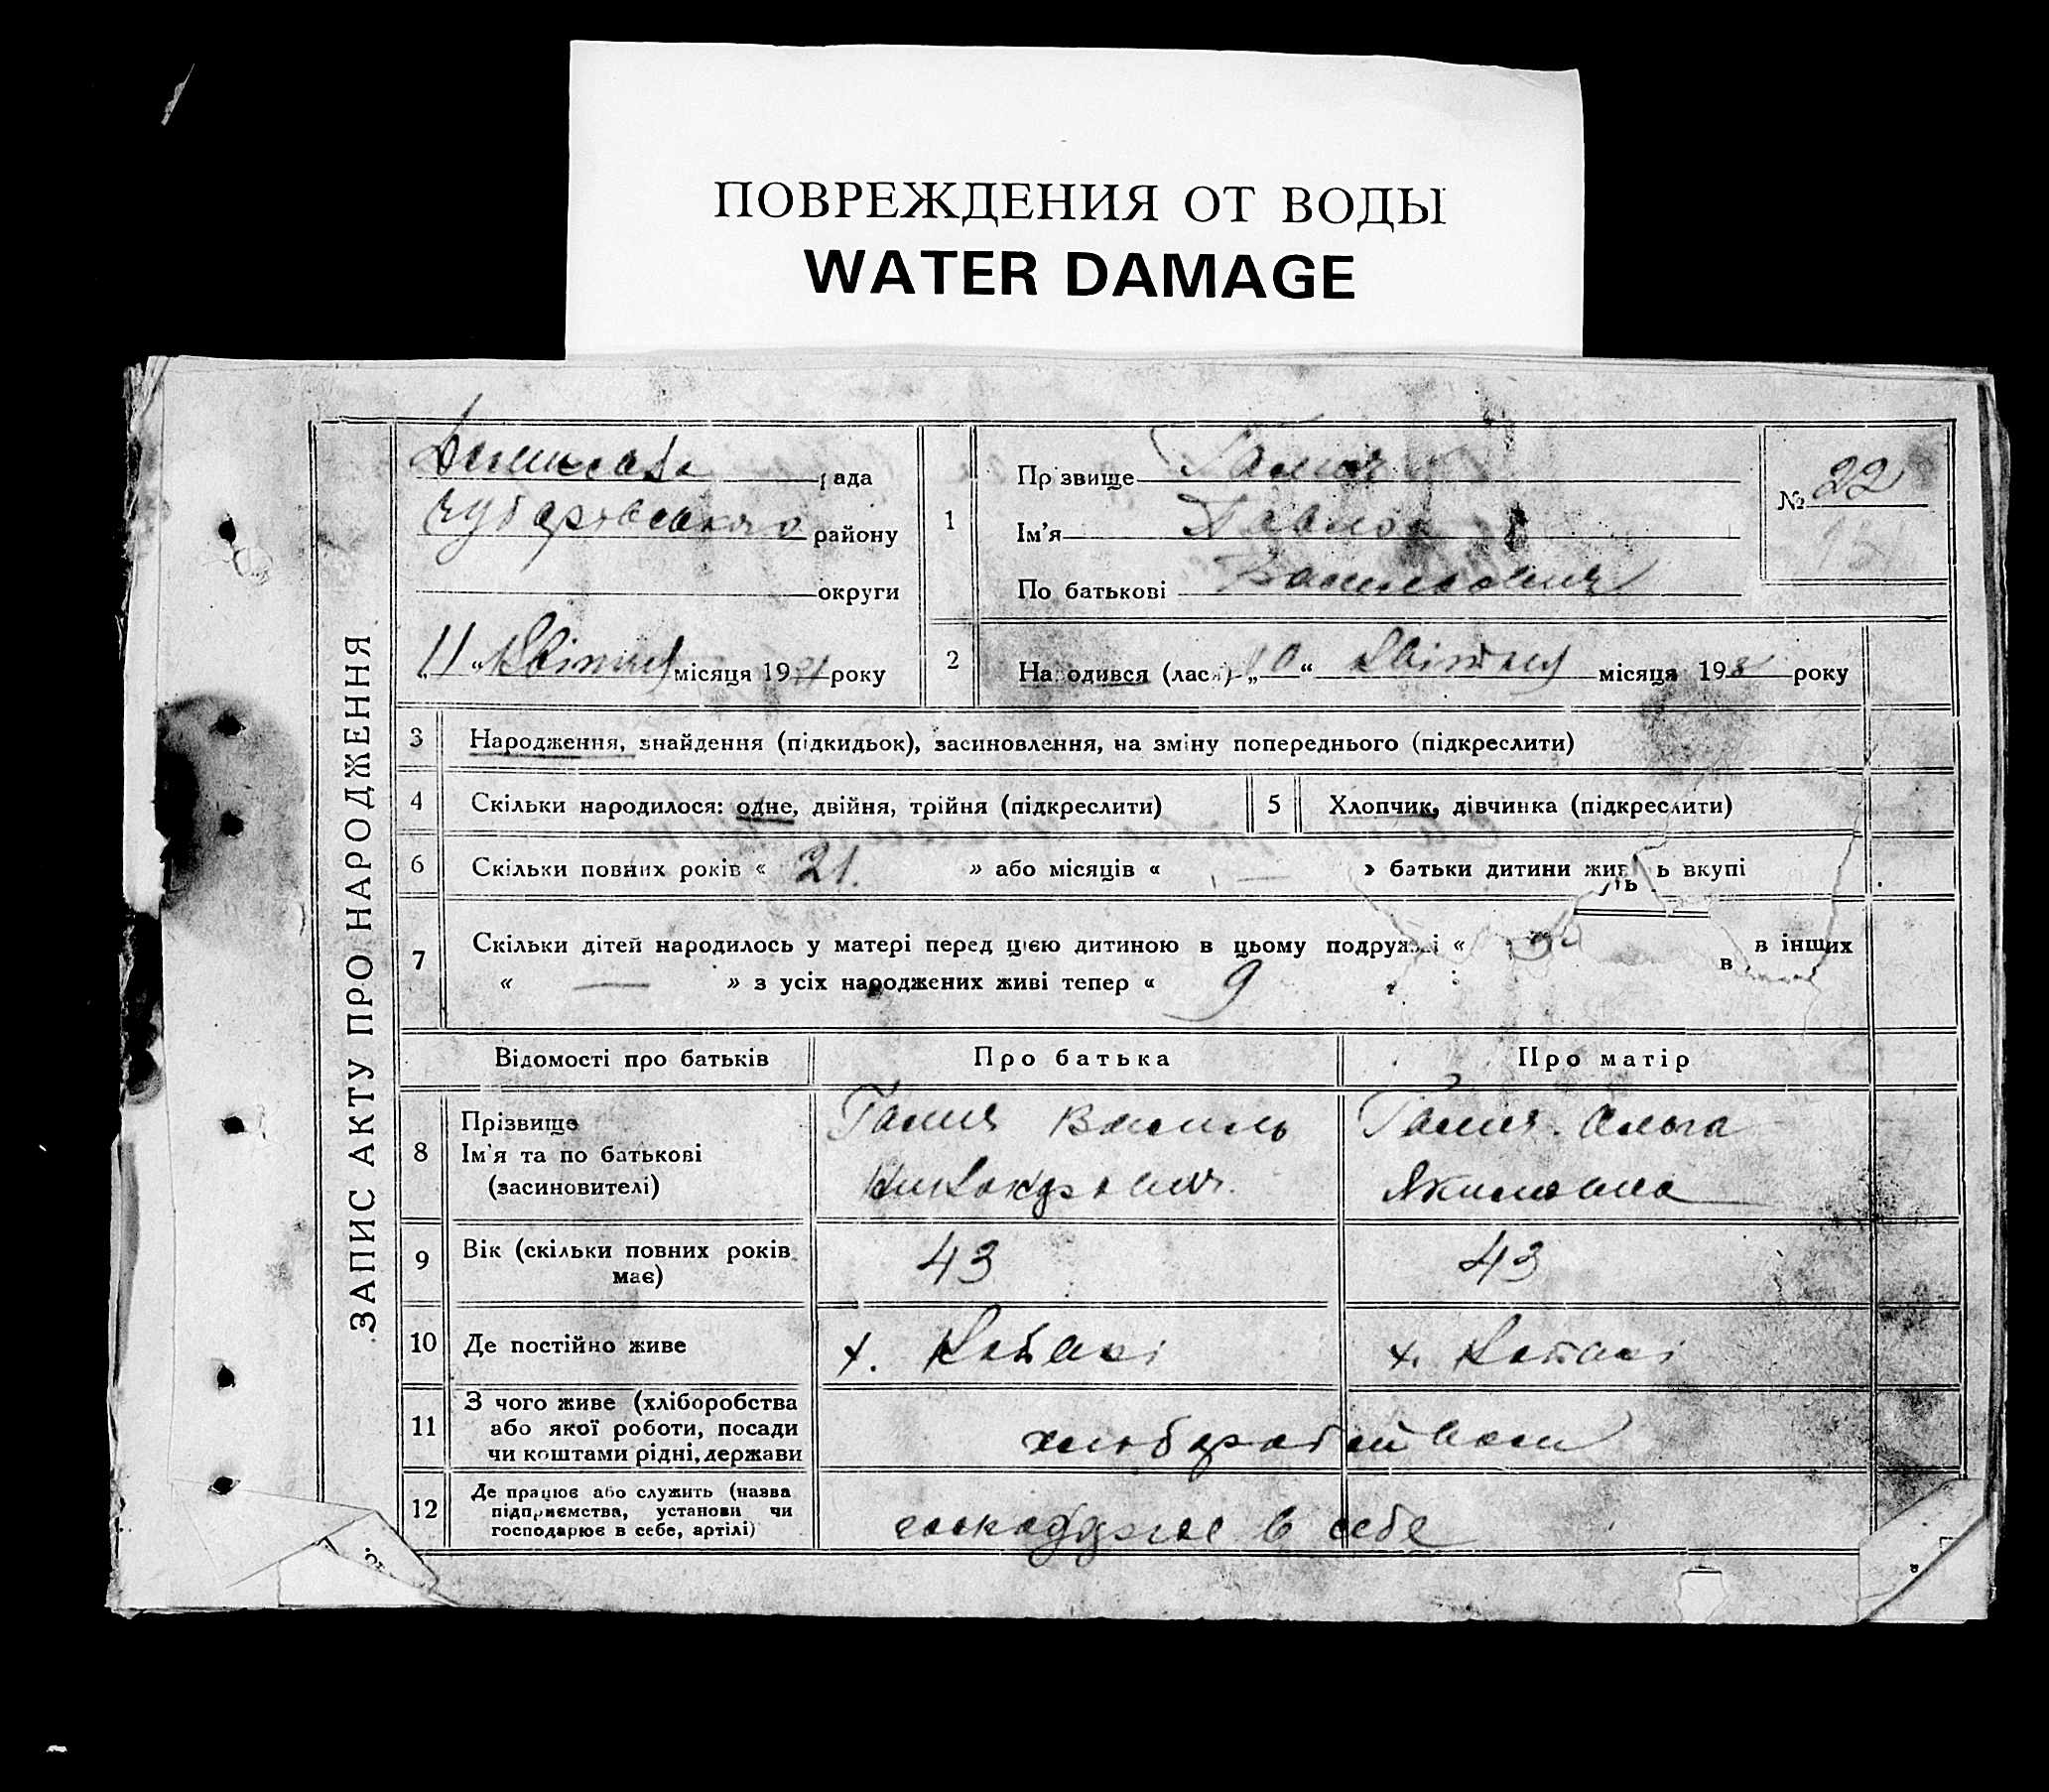 ПОВРЕЖДЕНИЯ ОТ ВОДЫ
WATER DAMAGE
ЗАПИС АКТУ ПРО НАРОДЖЕННЯ
рада
Чубарівського району
округи
„11“ Квітня місяця 19 року
1
Прізвище
Ім'я Павло
По батькові Васильович
№ 22
2
Народився (лася) „10“ Квітня місяця 19 року
3 Народження, знайдення (підкидьок), засиновлення, на зміну попереднього (підкреслити)
4 Скільки народилося: одне, двійня, трійня (підкреслити)
5 Хлопчик, дівчинка (підкреслити)
6 Скільки повних років « 21. » або місяців « — » батьки дитини живуть вкупі
7 Скільки дітей народилось у матері перед цією дитиною в цьому подружжі « в інших
« — » з усіх народжених живі тепер « 9
Відомості про батьків
Про батька
Про матір
8
Прізвище
Ім'я та по батькові
(засиновителі)
Василь
Ольга
Якимовна
9 Вік (скільки повних років
має)
43
43
10 Де постійно живе
х.
х.
11
З чого живе (хліборобства
або якої роботи, посади
чи коштами рідні, держави
хліборобством
12
Де працює або служить (назва
підприємства, установи чи
господарює в себе, артілі)
в себе